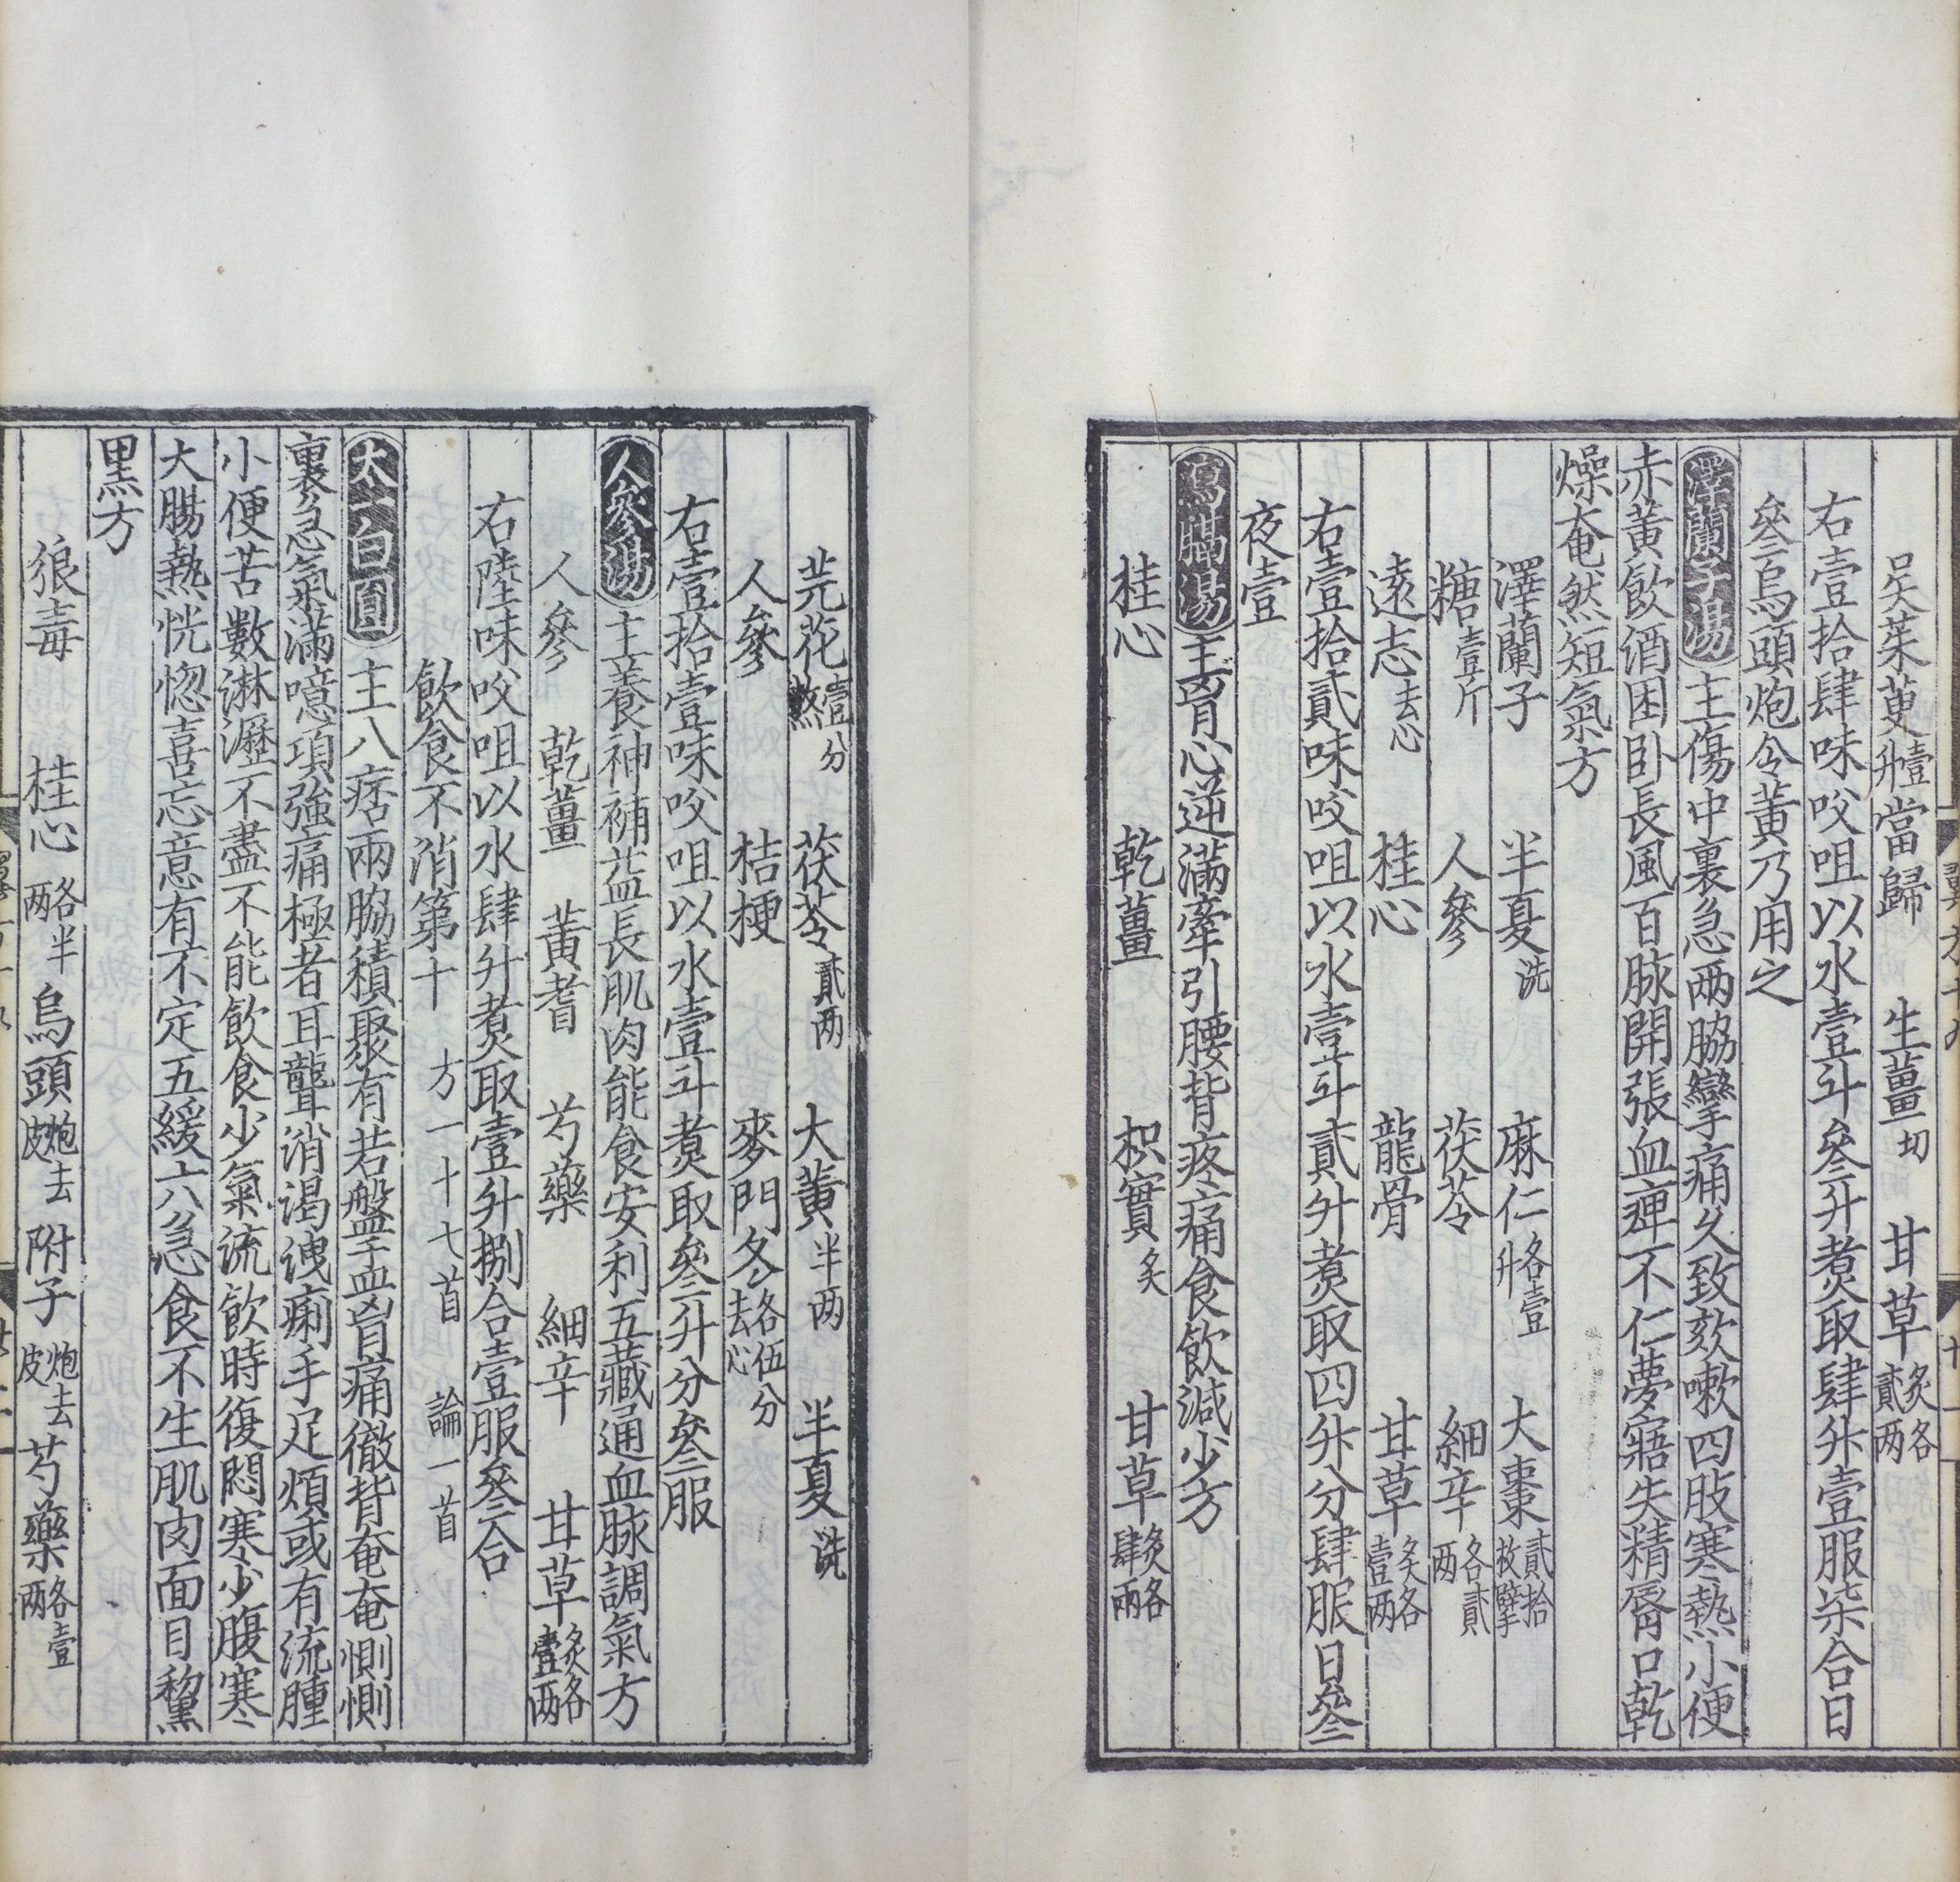 吳茱萸壹升 當歸 生薑切 甘草炙各貳兩
右壹拾肆味㕮咀以水壹斗叄升煮取肆升壹服柒合日
叄烏頭炮令黃乃用之
澤蘭子湯主傷中裏急兩脇攣痛久致欬嗽四肢寒熱小便
赤黃飲酒困卧長風百脉開張血痺不仁夢寤失精脣口乾
燥奄然短氣方
澤蘭子 半夏洗 麻仁各壹升 大棗貳拾枚擘
糖壹斤 人參 茯苓 細辛各貳兩
遠志去心 桂心 龍骨 甘草炙各壹兩
右壹拾貳味㕮咀以水壹斗貳升煮取四升分肆服日叄
夜壹
寫膈湯主胷心逆滿牽引腰背疼痛食飲減少方
桂心 乾薑 枳實炙 甘草炙各肆兩
芫花壹分熬 茯苓貳兩 大黃半兩 半夏洗
人參 桔梗 麥門冬各伍分去心
右壹拾壹味㕮咀以水壹斗煮取叄升分叄服
人參湯主養神補益長肌肉能食安利五藏通血脉調氣方
人參 乾薑 黃耆 芍藥 細辛 甘草炙各壹兩
右陸味㕮咀以水肆升煮取壹升捌合壹服叄合
飲食不消第十 方一十七首 論一首
太一白圓主八痞兩脇積聚有若盤盂胷痛徹背奄奄惻惻
裏急氣滿噫項強痛極者耳聾消渴洩痢手足煩或有流腫
小便苦數淋瀝不盡不能飲食少氣流飲時復悶寒少腹寒
大腸熱恍惚喜忘意有不定五緩六急食不生肌肉面目黧
黑方
狼毒 桂心各半兩 烏頭炮去皮 附子炮去皮 芍藥各壹兩